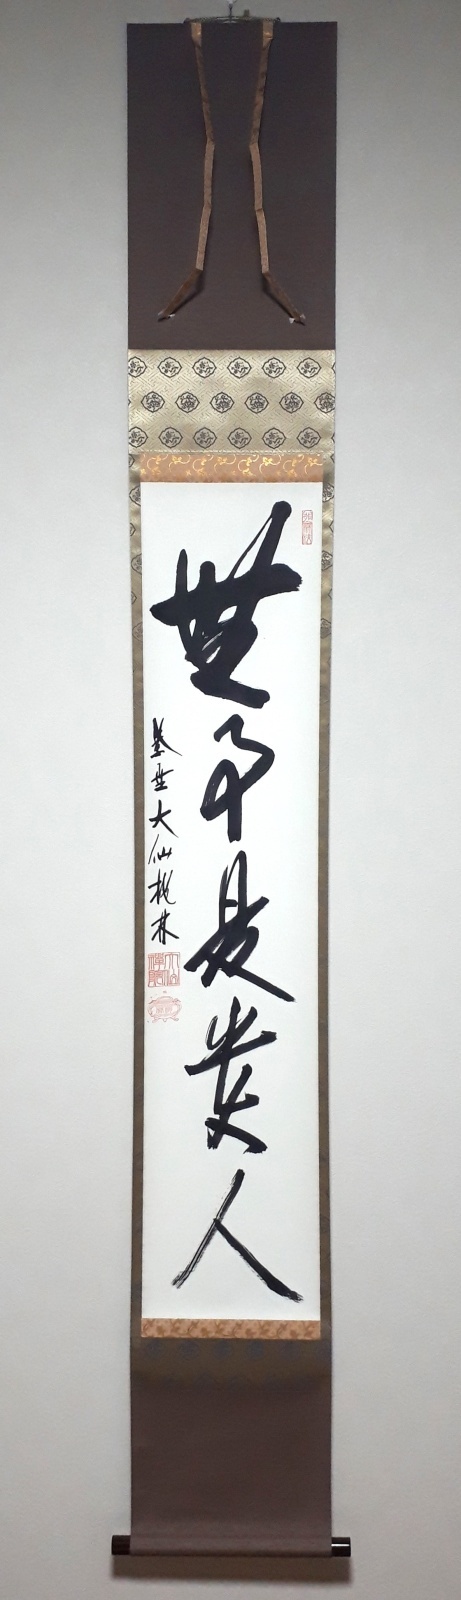 無事是貴人
紫野大仙桃林